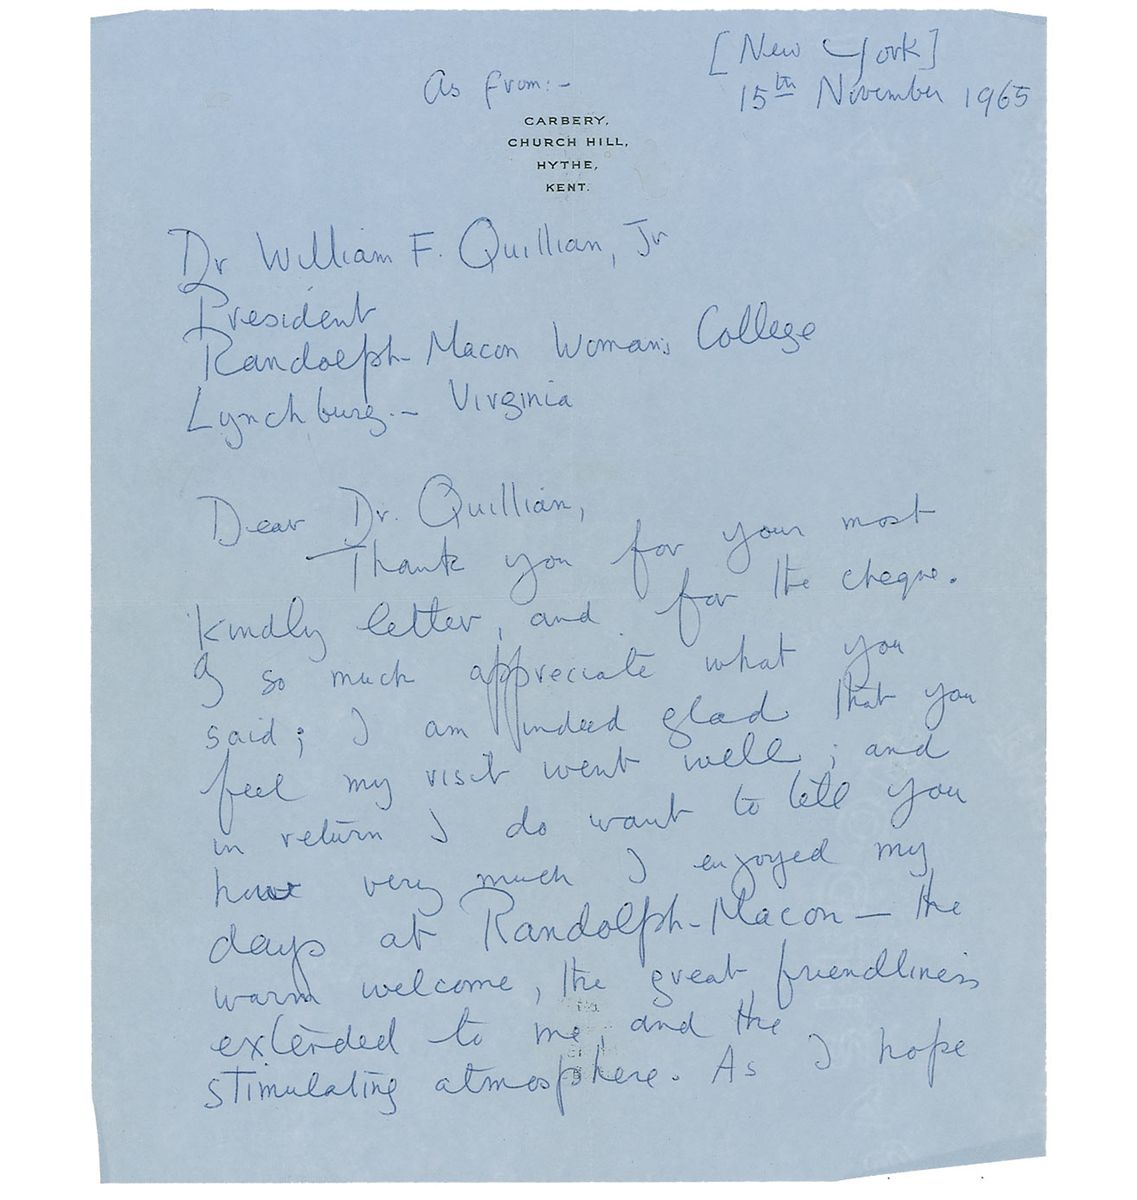 [New York]
As from:-
15th November 1965
CARBERY,
CHURCH HILL,
HYTHE,
KENT.
Dr William F. Quillian, Jr
President
Randolph-Macon Woman's College
Lynchburg.- Virginia
Dear Dr. Quillian,
Thank you for your most
kindly letter, and for the cheque.
I so much appreciate what you
said; I am indeed glad that you
feel my visit went well; and
in return I do want to tell you
how very much I enjoyed my
days at Randolph-Macon — the
warm welcome, the great friendliness
extended to me, and the
stimulating atmosphere. As I hope